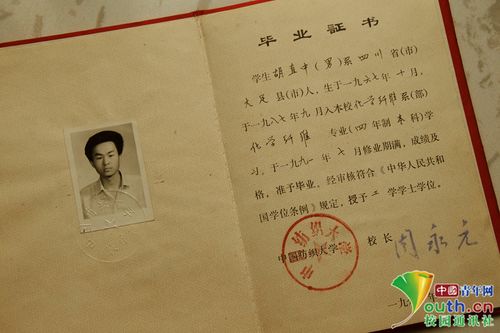 毕业证书
学生 胡直中 (男)系 四川 省(市)
大足 县(市)人，生于一九六七年十月，
于一九八七年九月入本校 化学纤维 系(部)
化学纤维 专业(四年制本科)学
习，于一九九一年七月修业期满，成绩及
格，准予毕业。经审核符合《中华人民共和
国学位条例》规定，授予工学学士学位。
中国纺织大学
校长 周永元
一九
中国青年网
Youth.cn
校园通讯社